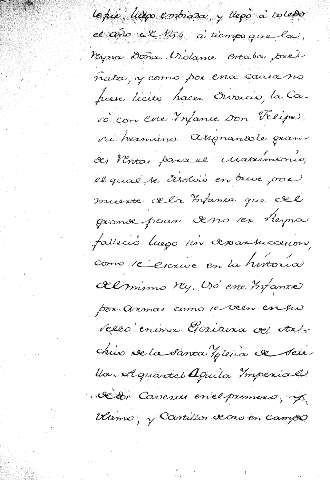 luego embiosa, y llegó á toledo
el año de 1254 á tiempo que la
Reyna Doña Violante estaba pre-
ñada, y como por esta causa no
fuese licito hacer divorcio, la Ca-
só con este Infante Don Felipe
su hermano asignandole gran-
des Rentas para el Matrimonio,
el qual se disolvio en breve por
muerte de la Infanta que del
grande pesar de no ser Reyna
fallecio luego sin dexar succesion,
como se escrive en la historia
del mismo Rey. Usó este Infante
por armas como se ven en su
sello en una Escritura del Ar-
chivo de la Santa Iglesia de Sevi-
lla. el quartel Aguila Imperial
de dos Cavezas en el primero, y
ultimo, y Castillos de oro en campo